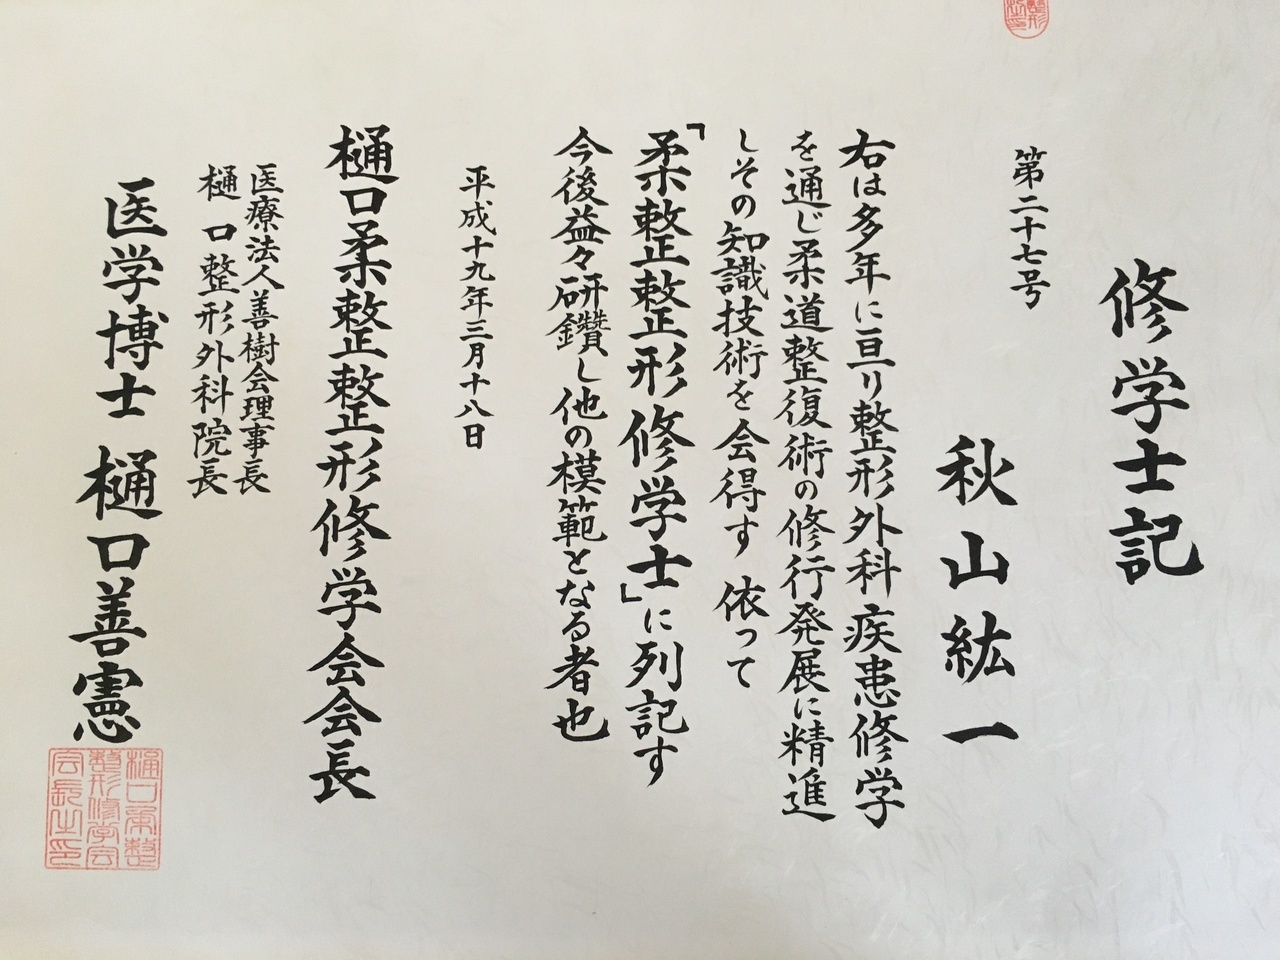 修学士記
第二十七号
秋山紘一
右は多年に亘り整形外科疾患修学
を通じ柔道整復術の修行発展に精進
しその知識技術を会得す 依って
「柔整整形修学士」に列記す
今後益々研鑽し他の模範となる者也
平成十九年三月十八日
樋口柔整整形修学会会長
医療法人善樹会理事長
樋口整形外科院長
医学博士 樋口善憲
樋口柔整
整形修学会
会長之印